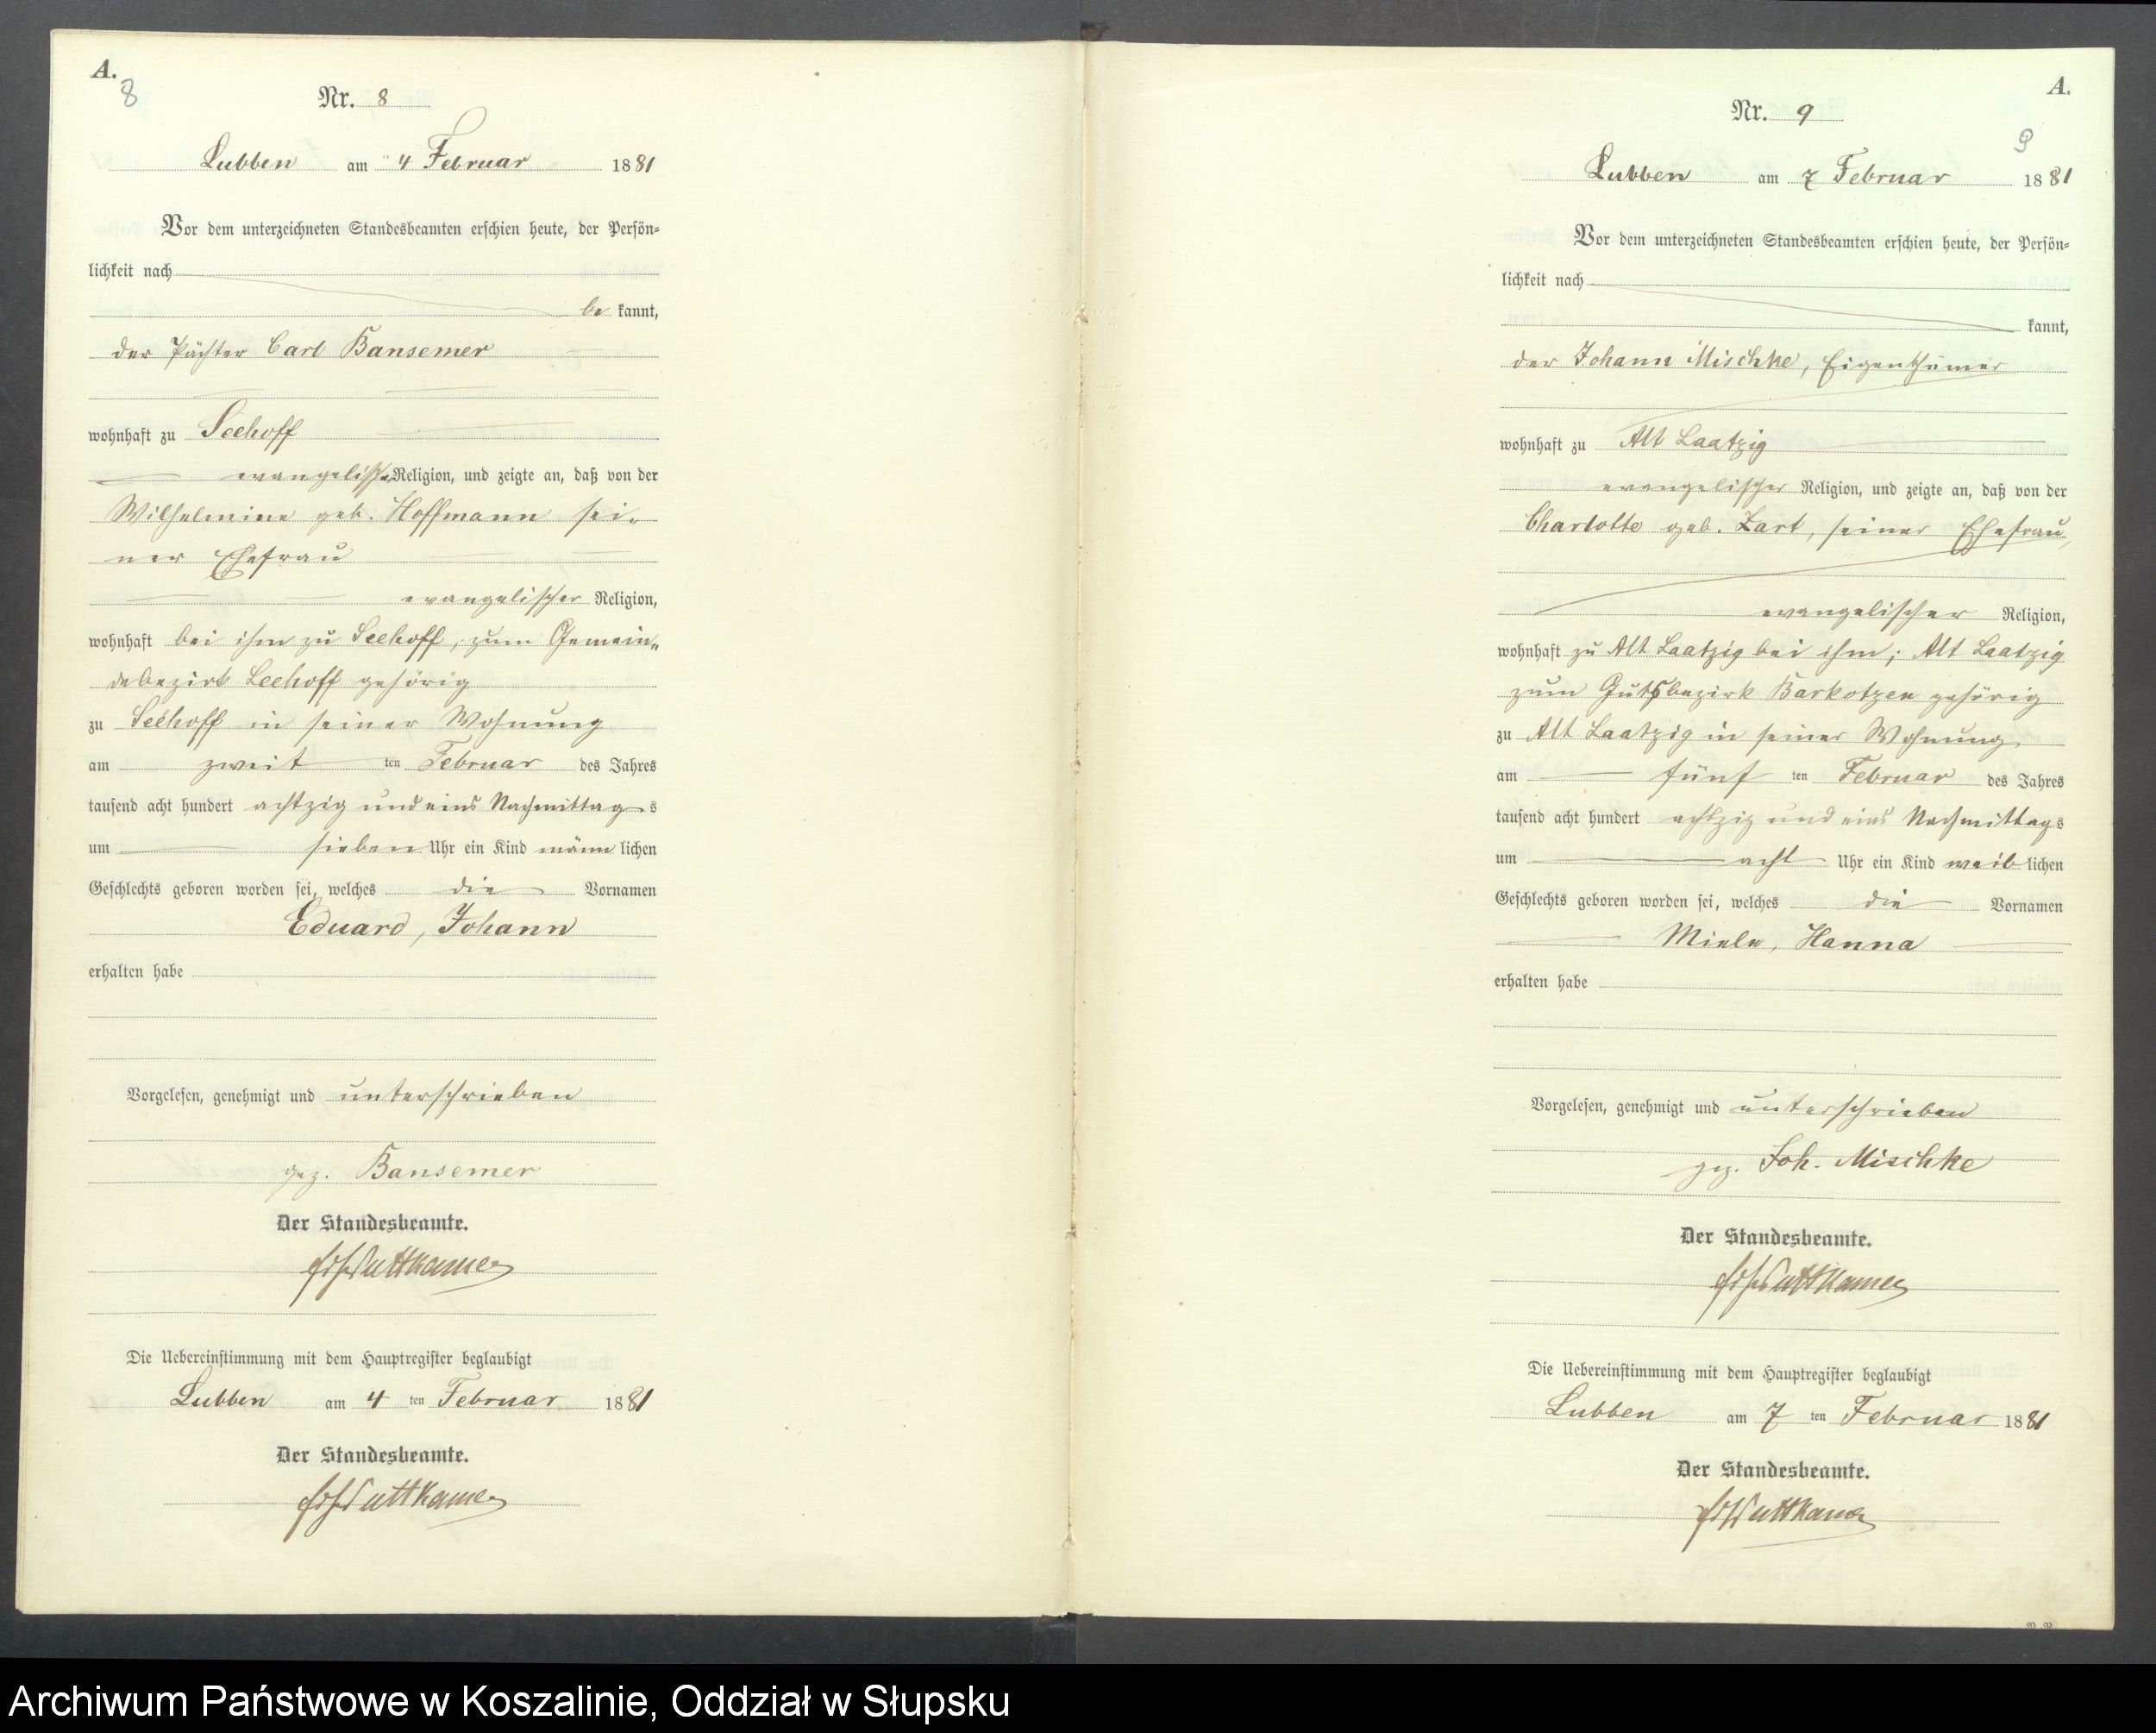 A.
8
Nr. 8
Lubben am 4 Februar 1881
Vor dem unterzeichneten Standesbeamten erschien heute, der Persön-
lichkeit nach
be kannt,
der Pächter Carl Bansemer
wohnhaft zu Seehoff
evangelischer Religion, und zeigte an, daß von der
Wilhelmine geb. Hoffmann sei-
ner Ehefrau
evangelischer Religion,
wohnhaft bei ihm zu Seehoff, zum Gemein-
debezirk Seehoff gehörig
zu Seehoff in seiner Wohnung
am zweit ten Februar des Jahres
tausend acht hundert achtzig und eins Nachmittags
um sieben Uhr ein Kind männlichen
Geschlechts geboren worden sei, welches die Vornamen
Eduard, Johann
erhalten habe
Vorgelesen, genehmigt und unterschrieben
gez. Bansemer
Der Standesbeamte.
Puttkamer
Die Uebereinstimmung mit dem Hauptregister beglaubigt
Lubben am 4 ten Februar 1881
Der Standesbeamte.
Puttkamer
A.
9
Nr. 9
Lubben am 7 Februar 1881
Vor dem unterzeichneten Standesbeamten erschien heute, der Persön-
lichkeit nach
kannt,
der Johann Mischke, Eigenthümer
wohnhaft zu Alt Laatzig
evangelischer Religion, und zeigte an, daß von der
Charlotte geb. Zart, seiner Ehefrau,
evangelischer Religion,
wohnhaft zu Alt Laatzig bei ihm; Alt Laatzig
zum Gutsbezirk Barkotzen gehörig
zu Alt Laatzig in seiner Wohnung
am fünf ten Februar des Jahres
tausend acht hundert achtzig und eins Nachmittags
um acht Uhr ein Kind weiblichen
Geschlechts geboren worden sei, welches die Vornamen
Miele, Hanna
erhalten habe
Vorgelesen, genehmigt und unterschrieben
gez. Joh. Mischke
Der Standesbeamte.
Puttkamer
Die Uebereinstimmung mit dem Hauptregister beglaubigt
Lubben am 7 ten Februar 1881
Der Standesbeamte.
Puttkamer
Archiwum Państwowe w Koszalinie, Oddział w Słupsku